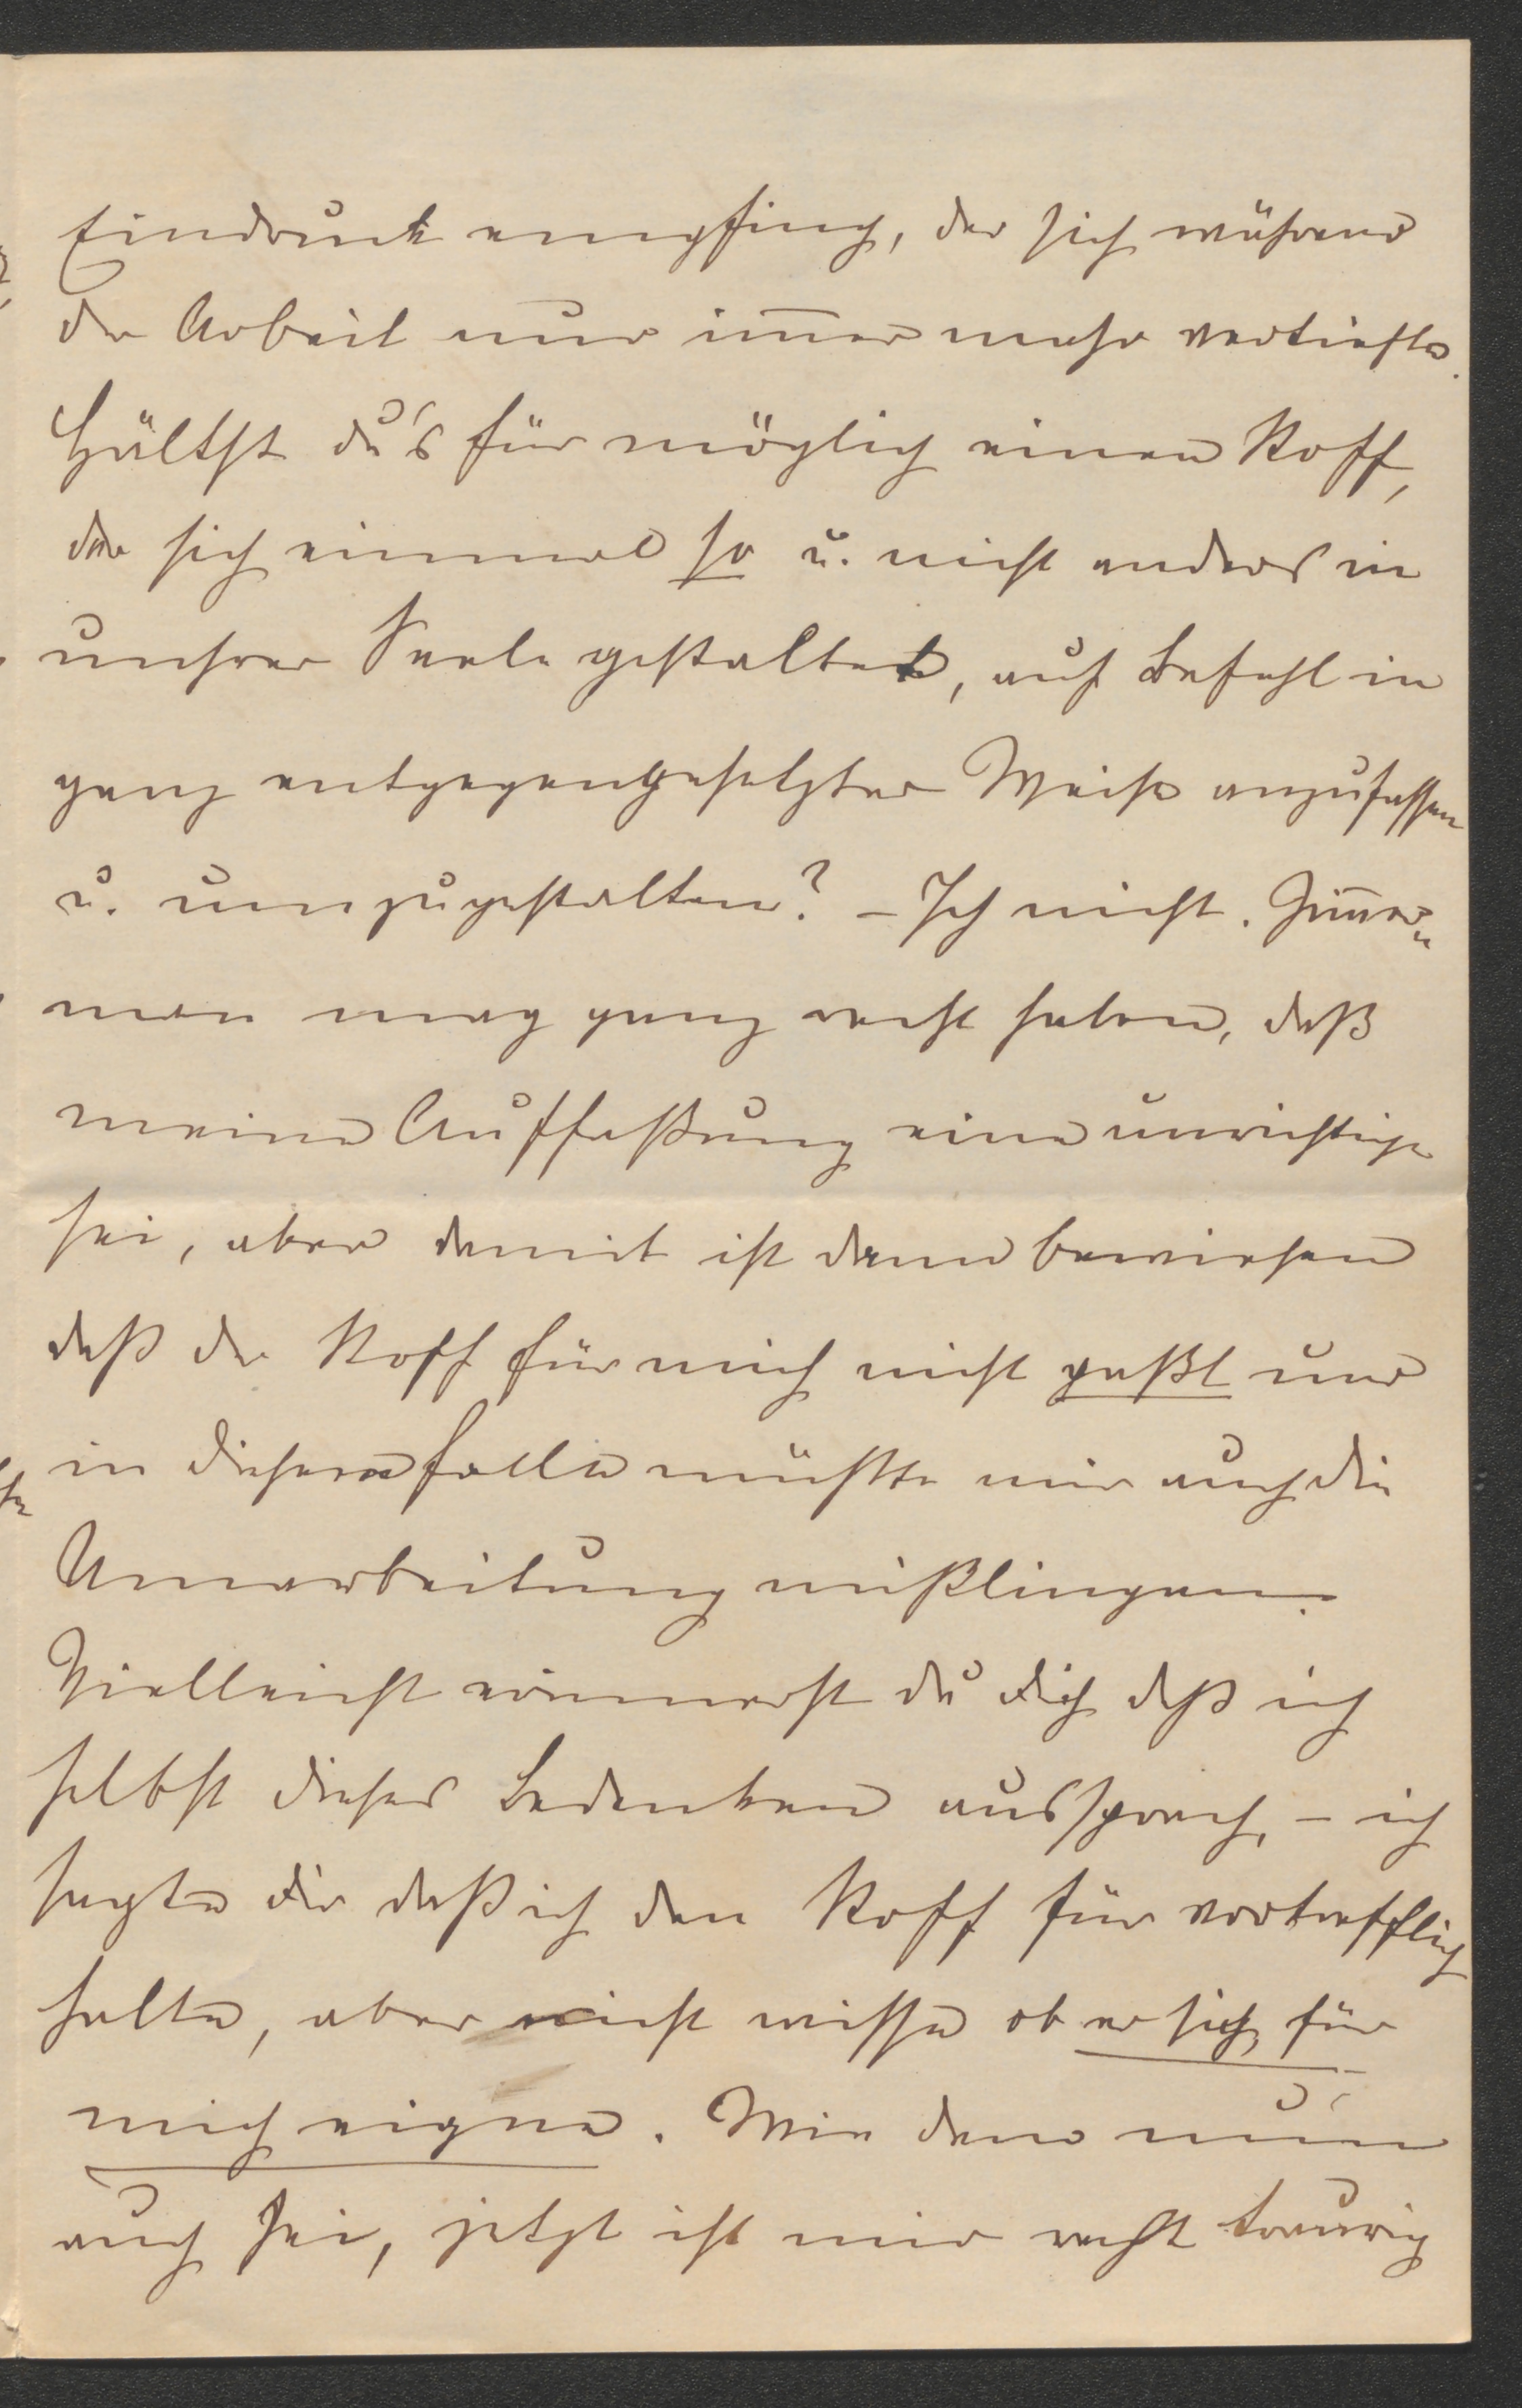 Eindruck empfing, der sich während
der Arbeit nur im̅er mehr vertiefte.
Hältst du's für möglich einen Stoff,
der sich einmal so u. nicht anders in
unsrer Seele gestaltet, auf Befehl in
ganz entgegengesetzter Weise anzufassen
u. umzugestalten? – Ich nicht.
man mag ganz recht haben, daß
meine Auffaßung eine unrichtige
sei, aber damit ist dann bewiesen
daß der Stoff für mich nicht paßt und
in diesem Falle müßte mir auch die
Umarbeitung mißlingen.
Vielleicht erinnerst du dich daß ich
selbst dieses Bedenken aussprach, – ich
sagte dir daß ich den Stoff für vortrefflich
halte, aber nicht wisse ob er sich für
mich eigne. Wie dem nun
auch sei, jetzt ist mir recht traurig